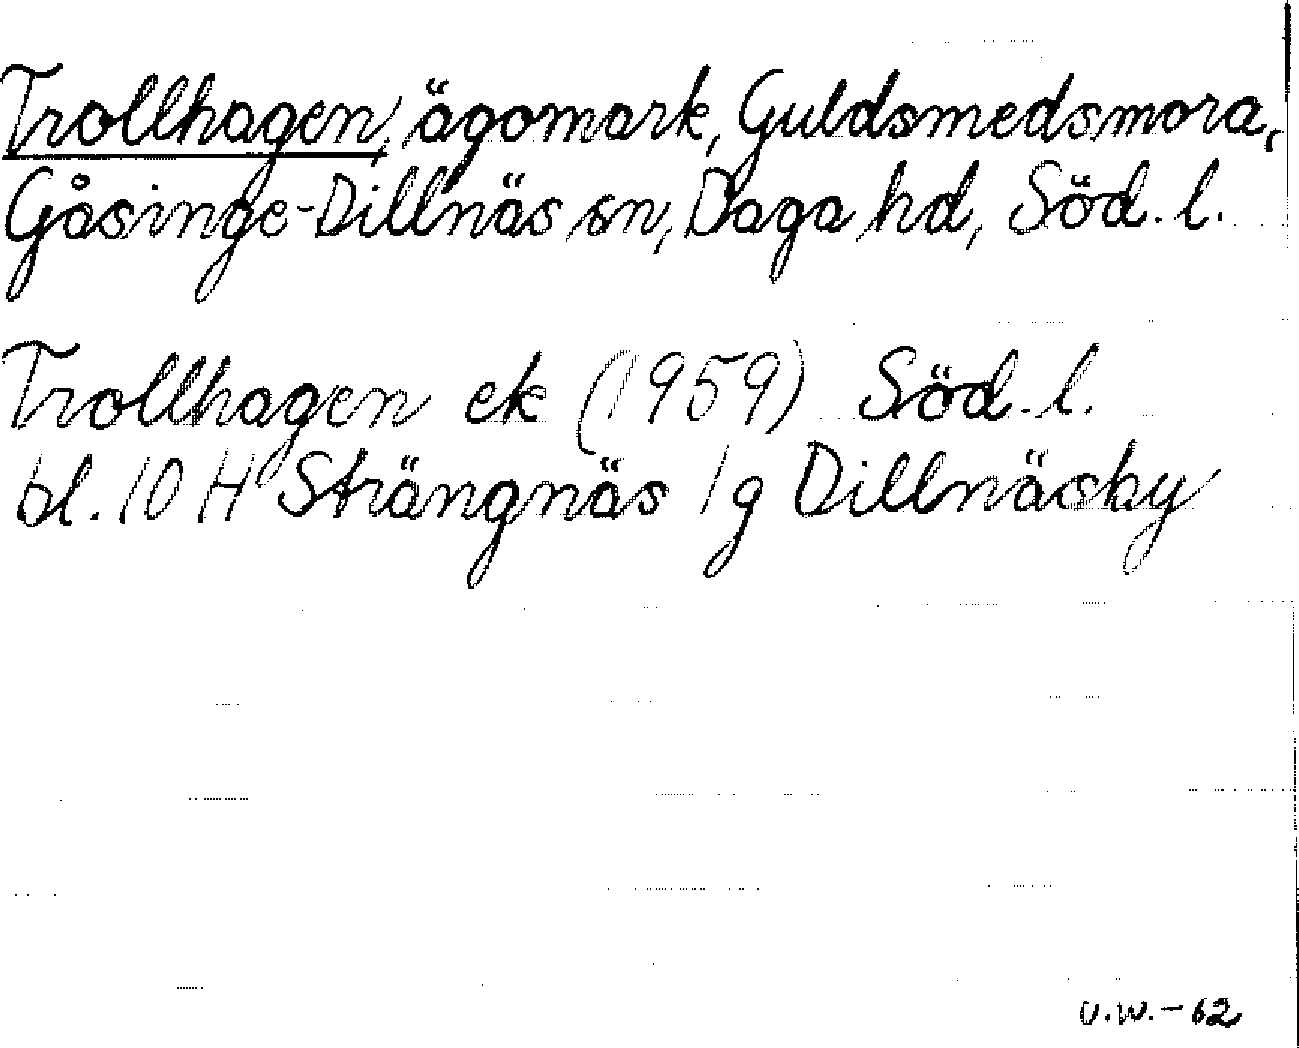 Trollhagen, ägomark, Guldsmedsmora,
Gåsinge-Dillnäs sn, Daga hd, Söd. l.
Trollhagen ek (1959) Söd. l.
bl. 10 H Strängnäs 1 g Dillnäsby
U.W.-62